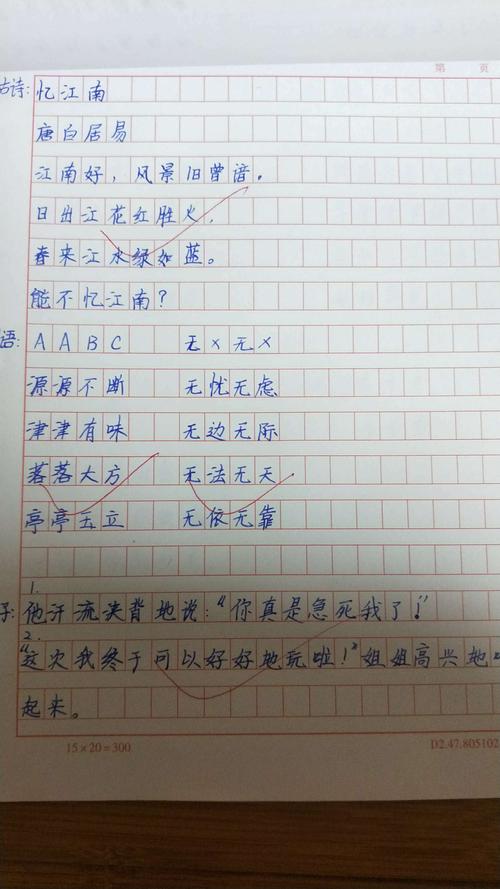 第 页
古诗:忆江南
唐白居易
江南好，风景旧曾谙。
日出江花红胜火，
春来江水绿如蓝。
能不忆江南？
语: AABC 无×无×
源源不断 无忧无虑
津津有味 无边无际
落落大方 无法无天
亭亭玉立 无依无靠
1.
子:他汗流浃背地说：“你真是急死我了！”
2.
“这次我终于可以好好地玩啦！”姐姐高兴地
起来。
15×20=300 D2.47.805102